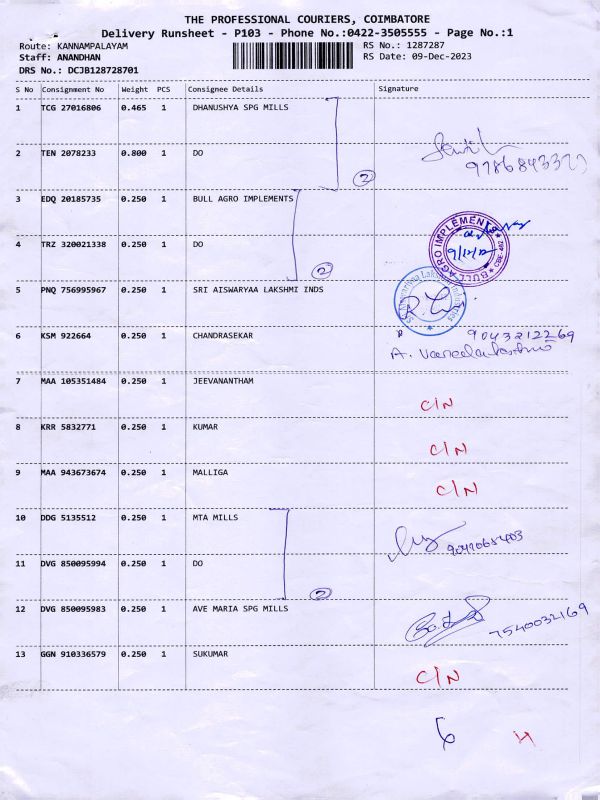 THE PROFESSIONAL COURIERS, COIMBATORE
Delivery Runsheet - P103 - Phone No.:0422-3505555 - Page No.:1
Route: KANNAMPALAYAM RS No.: 1287287
Staff: ANANDHAN RS Date: 09-Dec-2023
DRS No.: DCJB128728701
S No Consignment No Weight PCS Consignee Details Signature
1 TCG 27016806 0.465 1 DHANUSHYA SPG MILLS
2 TEN 2078233 0.800 1 DO
2
3 EDQ 20185735 0.250 1 BULL AGRO IMPLEMENTS
4 TRZ 320021338 0.250 1 DO
BULL AGRO IMPLEMENTS
2
5 PNQ 756995967 0.250 1 SRI AISWARYAA LAKSHMI INDS
6 KSM 922664 0.250 1 CHANDRASEKAR 9043212269
7 MAA 105351484 0.250 1 JEEVANANTHAM C/N
8 KRR 5832771 0.250 1 KUMAR C/N
9 MAA 943673674 0.250 1 MALLIGA C/N
10 DDG 5135512 0.250 1 MTA MILLS
11 DVG 850095994 0.250 1 DO
2
12 DVG 850095983 0.250 1 AVE MARIA SPG MILLS 7540032169
13 GGN 910336579 0.250 1 SUKUMAR C/N
6 4